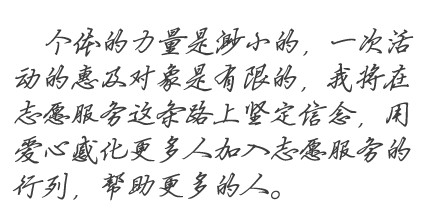 个体的力量是渺小的，一次活
动的惠及对象是有限的，我将在
志愿服务这条路上坚定信念，用
爱心感化更多人加入志愿服务的
行列，帮助更多的人。